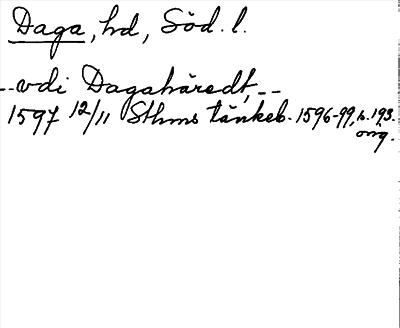 Daga, hd, Söd. l.
--vdi Dagahäredt, --
1597 12/11 Sthms tänkeb. 1596-99, s. 193.
orig.